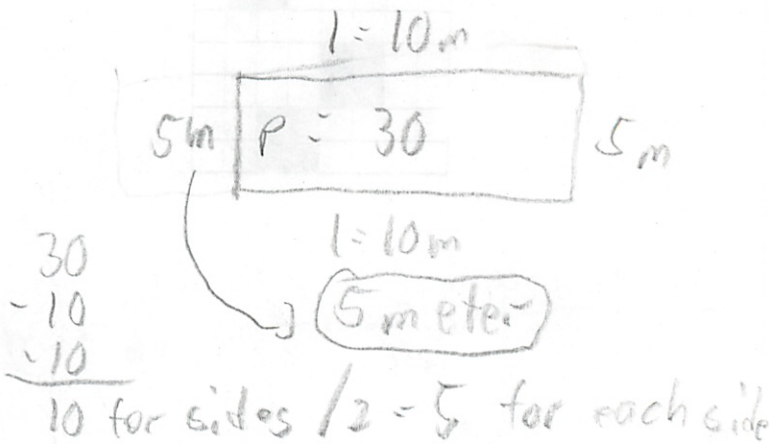 l = 10 m
5 m P = 30 5 m
l = 10 m
5 meter
30
- 10
- 10
10 for sides / 2 = 5 for each side